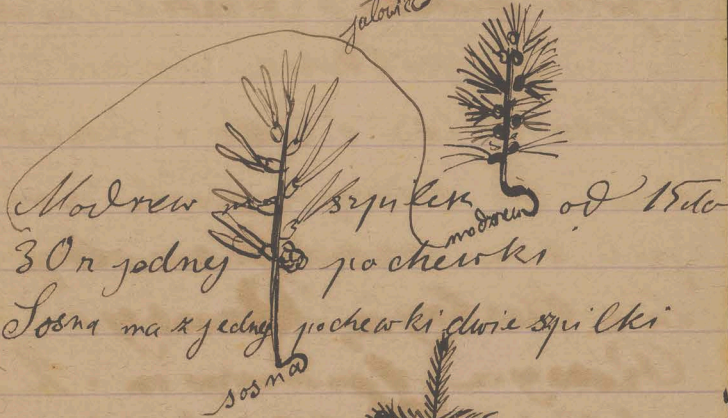 jałowiec
Modrzew ma szpilek od 15 do
modrzew
30 z jednej pochewki
Sosna ma z jednej pochewki dwie szpilki
sosna